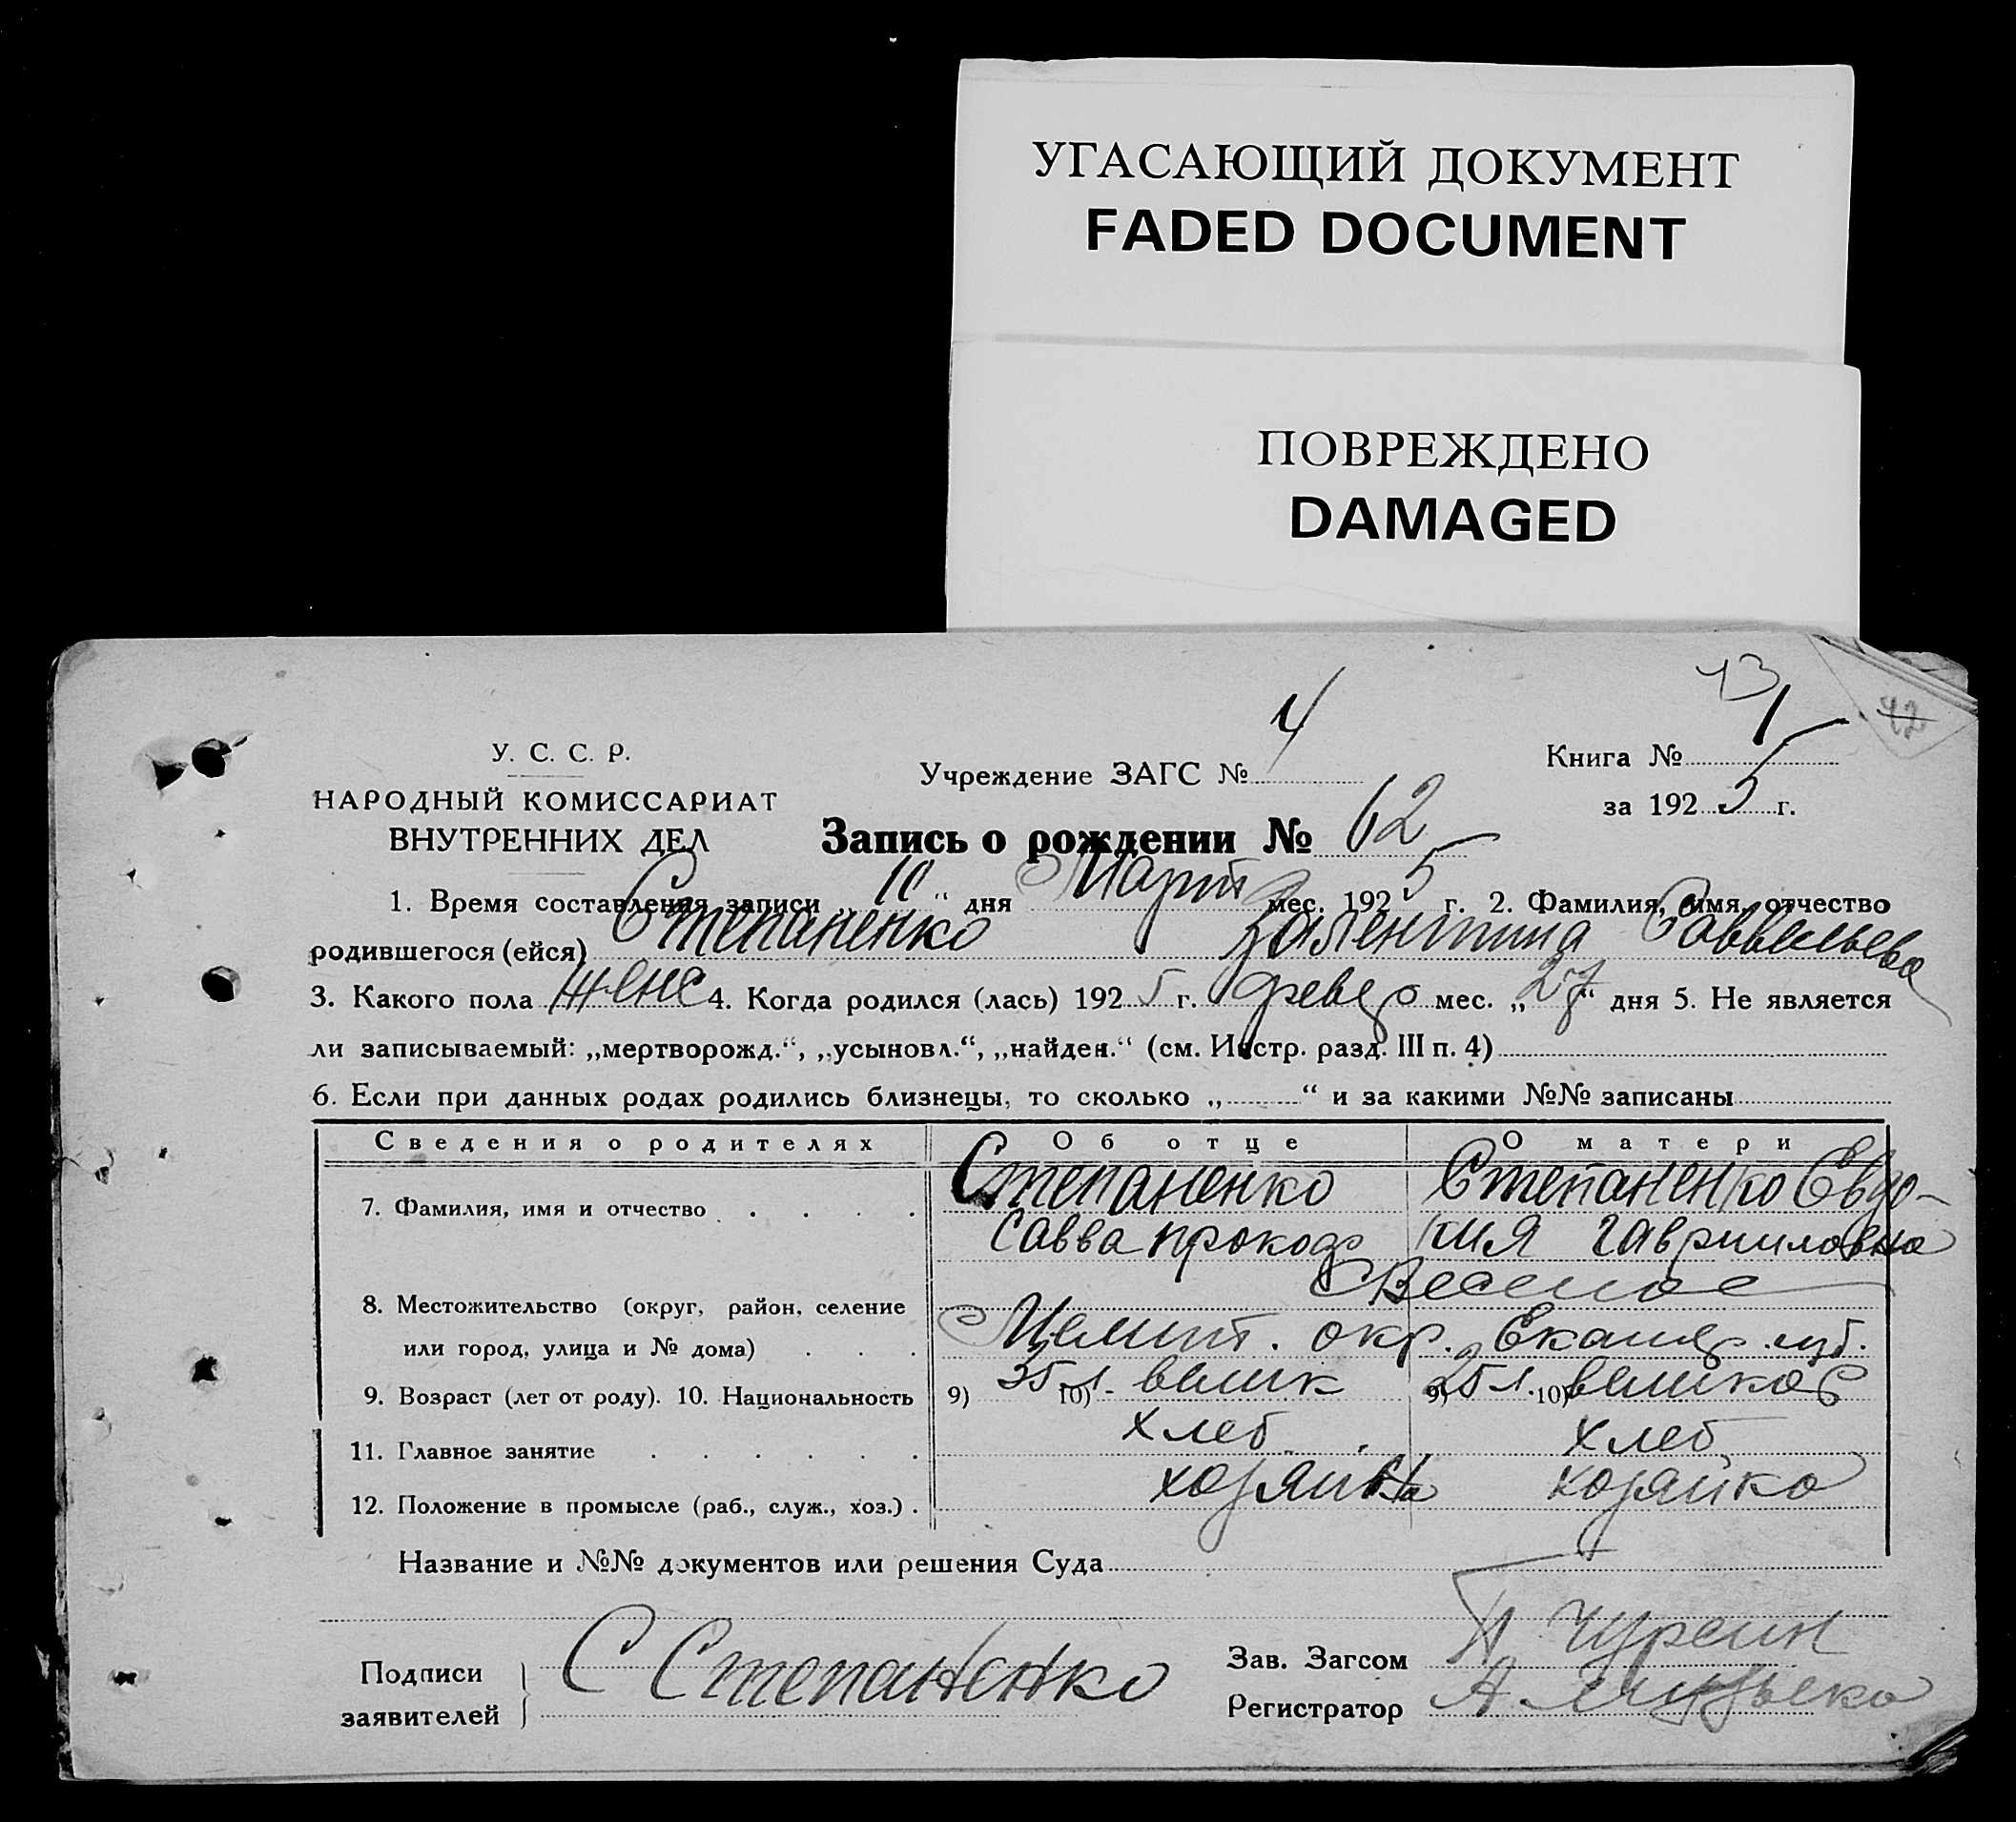 УГАСАЮЩИЙ ДОКУМЕНТ
FADED DOCUMENT
ПОВРЕЖДЕНО
DAMAGED
13
42
У. С. С. Р.
НАРОДНЫЙ КОМИССАРИАТ
ВНУТРЕННИХ ДЕЛ
Учреждение ЗАГС № 4
Книга № 1
за 1925 г.
Запись о рождении № 62
1. Время составления записи „10“ дня Март мес. 1925 г. 2. Фамилия, имя, отчество
родившегося (ейся) Степаненко Валентина Саввельева
3. Какого пола женс 4. Когда родился (лась) 1925 г. февр мес. „27“ дня 5. Не является
ли записываемый: „мертворожд.“, „усыновл.“, „найден.“ (см. Инстр. разд. III п. 4)
6. Если при данных родах родились близнецы, то сколько „ “ и за какими №№ записаны
Сведения о родителях Об отце О матери
7. Фамилия, имя и отчество Степаненко Степаненко Евдо-
Савва Прокоф кия Гаврииловна
8. Местожительство (округ, район, селение Веселое
или город, улица и № дома) Мелит. окр. Екатер. губ.
9. Возраст (лет от роду). 10. Национальность 9) 35 л. 10) велик 9) 25 л. 10) великор
11. Главное занятие хлеб хлеб
12. Положение в промысле (раб., служ., хоз.) хозяин хозяйка
Название и №№ документов или решения Суда
Подписи
заявителей
С Степаненко
Зав. Загсом П Чурсин
Регистратор А